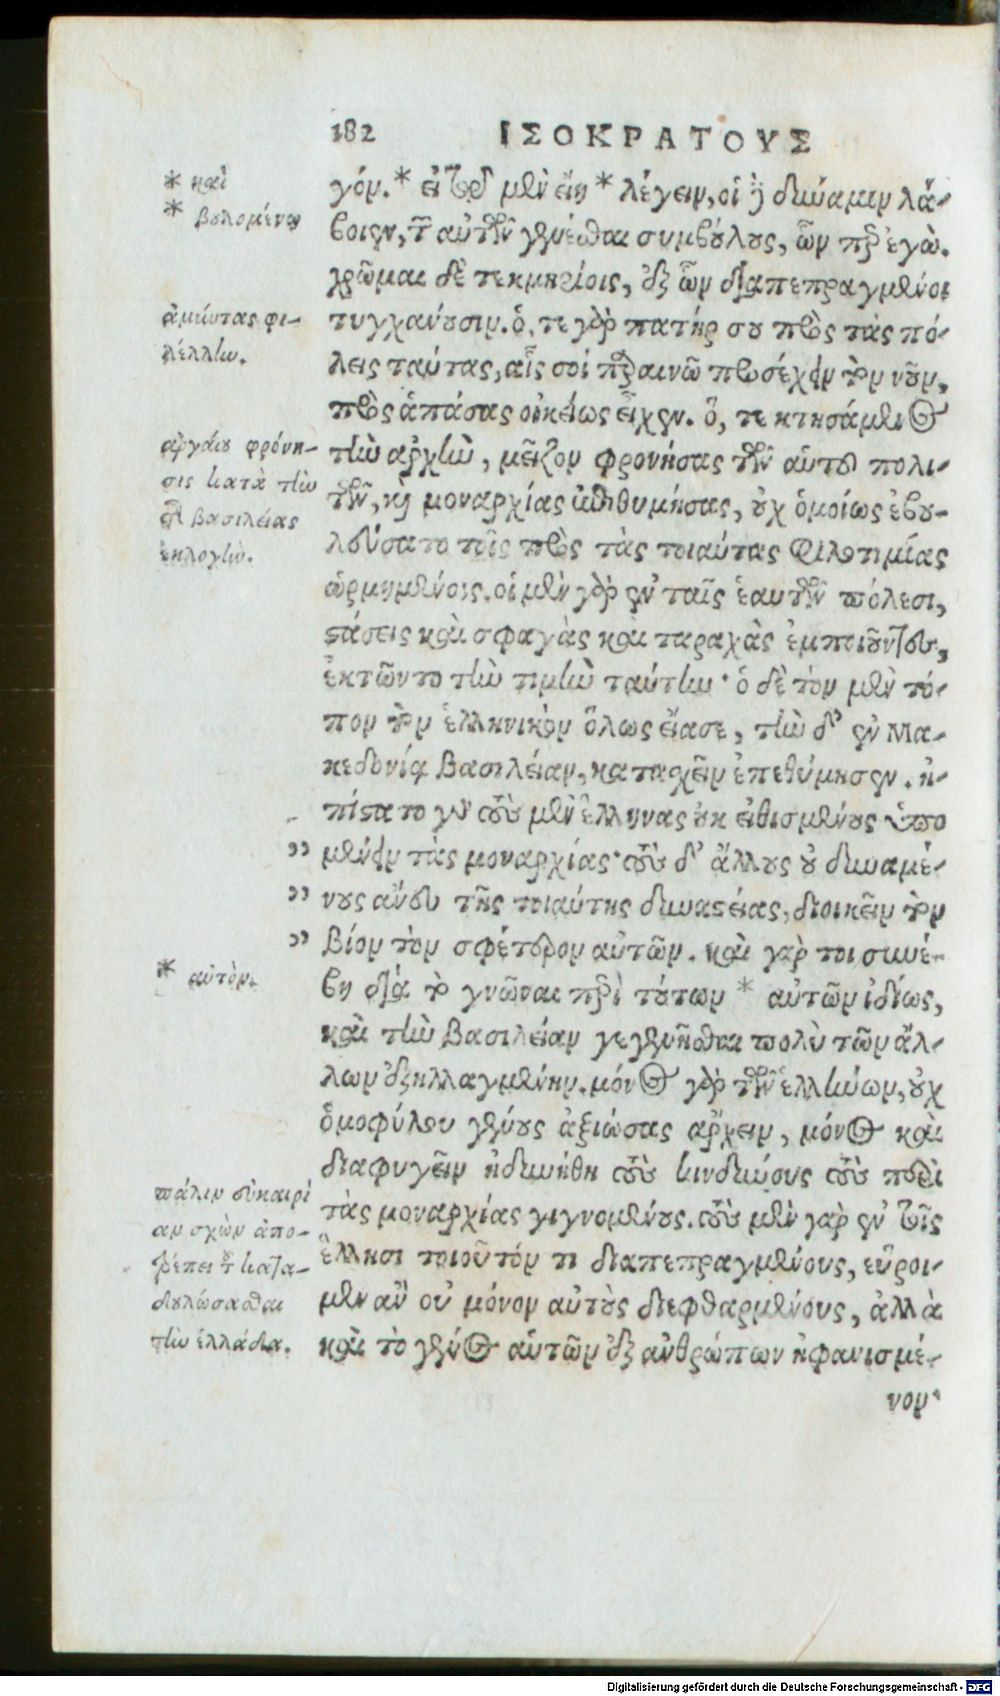 182 ΙΣΟΚΡΑΤΟΥΣ
* καὶ
* βουλομένῳ
γόν. * εἰ τοῦ μὲν εἴη * λέγειν, οἱ δὲ δύναμιν λά-
βοιεν, τ αὐτῶν γενέσθαι συμβούλους, ὧν περ ἐγὼ.
χρῶμαι δὲ τεκμηρίοις, ἐξ ὧν διαπεπραγμένοι
ἀμύντας φι-
λέλλην.
τυγχάνουσιν. ὅ, τε γὰρ πατήρ σου πρὸς τὰς πό-
λεις ταύτας, αἷς σοὶ παραινῶ προσέχειν τὸν νοῦν,
πρὸς ἁπάσας οἰκείως εἶχεν. ὅ, τε κτησάμενος
ἀργαίου φρόνη-
σις κατὰ τὴν
τῆς βασιλείας
ἐκλογήν.
τὴν ἀρχὴν, μεῖζον φρονήσας τῶν αὑτοῦ πολι-
τῶν, καὶ μοναρχίας ἐπιθυμήσας, οὐχ ὁμοίως ἐβου-
λεύσατο τοῖς πρὸς τὰς τοιαύτας φιλοτιμίας
ὡρμημένοις. οἱ μὲν γὰρ ἐν ταῖς ἑαυτῶν πόλεσι,
στάσεις καὶ σφαγὰς καὶ ταραχὰς ἐμποιοῦντες,
ἐκτῶντο τὴν τιμὴν ταύτην· ὁ δὲ τὸν μὲν τό-
πον τὸν ἑλληνικὸν ὅλως εἴασε, τὴν δ' ἐν Μα-
κεδονίᾳ βασιλείαν, κατασχεῖν ἐπεθύμησεν. ἠ-
πίστατο γὰρ τοὺς μὲν ἕλληνας οὐκ εἰθισμένους ὑπο
,, μένειν τὰς μοναρχίας· τοὺς δ' ἄλλους οὐ δυναμέ-
,, νους ἄνευ τῆς τοιαύτης δυναστείας, διοικεῖν τὸν
,, βίον τὸν σφέτερον αὐτῶν. καὶ γάρ τοι συνέ-
* αὐτὸν.
βη διὰ τὸ γνῶναι περὶ τούτων * αὐτῶν ἰδίως,
καὶ τὴν βασιλείαν γεγενῆσθαι πολὺ τῶν ἄλ-
λων ἐξηλλαγμένην. μόνος γὰρ τῶν ἑλλήνων, οὐχ
ὁμοφύλου γένους ἀξιώσας ἄρχειν, μόνος καὶ
διαφυγεῖν ἠδυνήθη τοὺς κινδύνους τοὺς περὶ
πάλιν εὐκαιρί
αν σχὼν ἀπο-
τρέπει τοῦ κατα-
δουλώσασθαι
τὴν ἑλλάδα.
τὰς μοναρχίας γιγνομένους. τοὺς μὲν γὰρ ἐν τοῖς
ἕλλησι τοιοῦτόν τι διαπεπραγμένους, εὕροι-
μεν ἂν οὐ μόνον αὐτοὺς διεφθαρμένους, ἀλλὰ
καὶ τὸ γένος αὐτῶν ἐξ ἀνθρώπων ἠφανισμέ-
νον·
Digitalisierung gefördert durch die Deutsche Forschungsgemeinschaft - DFG